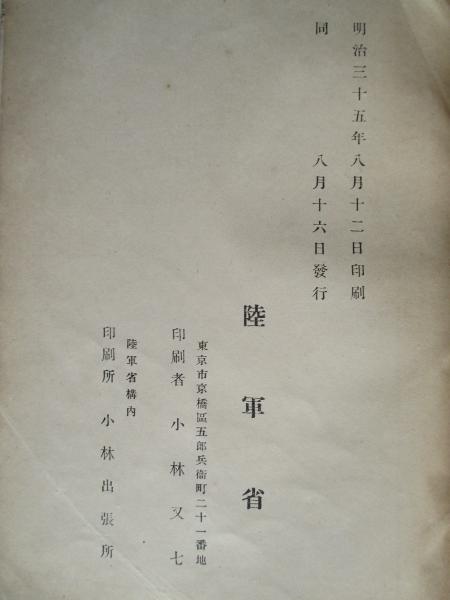 明治三十五年八月十二日印刷
同　八月十六日發行
陸軍省
東京市京橋區五郎兵衞町二十一番地
印刷者　小林又七
陸軍省構内
印刷所　小林出張所